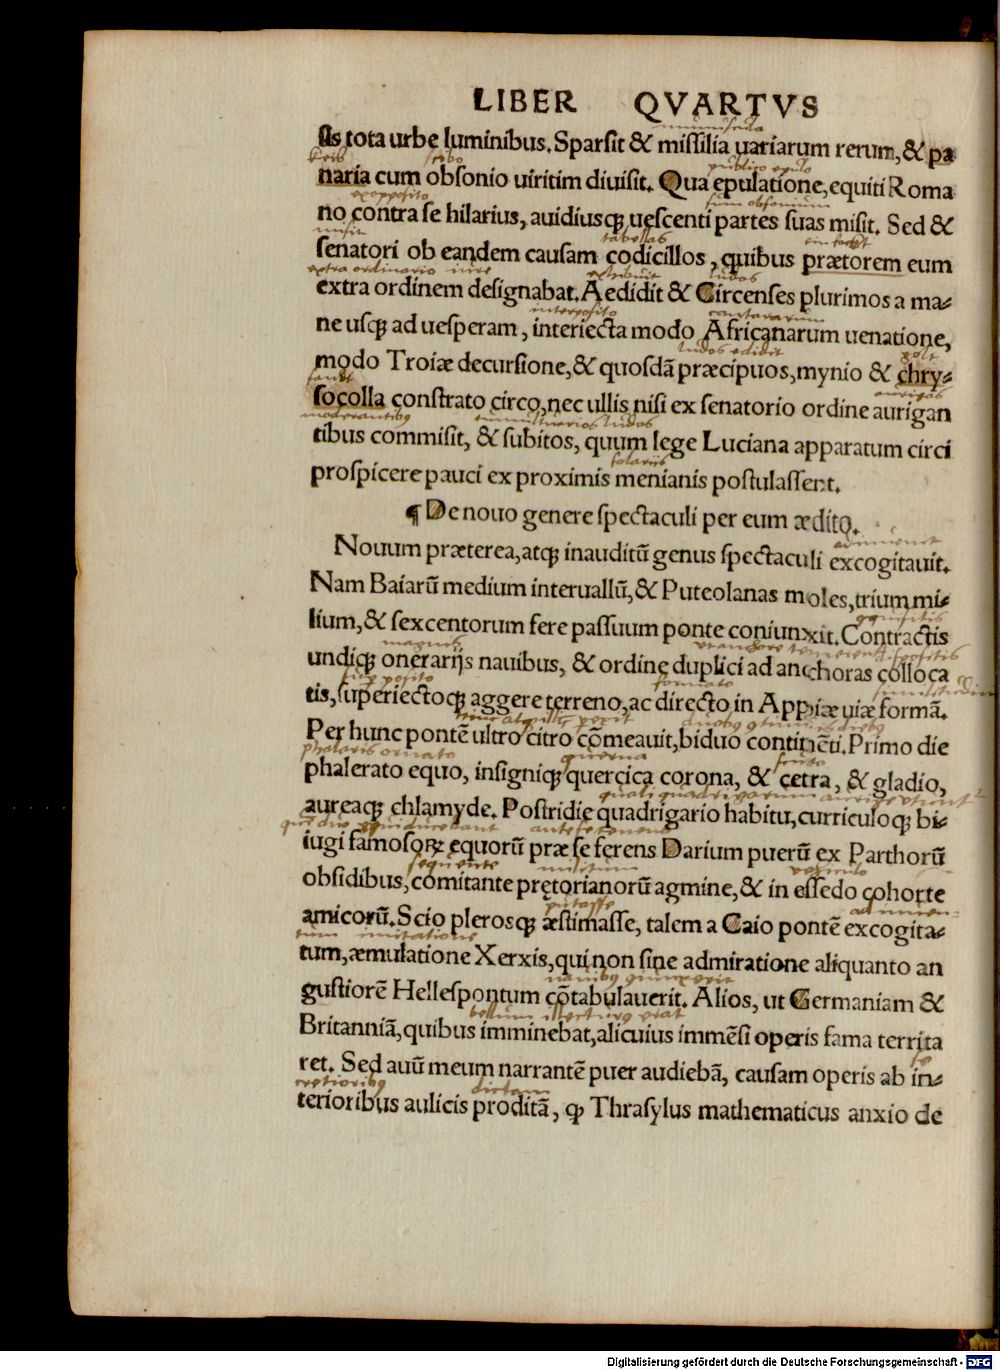 LIBER QVARTVS
sis tota urbe luminibus. Sparsit & missilia uariarum rerum, & pa
naria cum obsonio uiritim diuisit. Qua epulatione, equiti Roma
publico epulo
no contra se hilarius, auidiusqȝ uescenti partes suas misit. Sed &
misit
tabellas
senatori ob eandem causam codicillos, quibus prætorem eum
extra ordinario iure
exhibuit
ludos
extra ordinem designabat. Aedidit & Circenses plurimos a ma-
interposito
ne usqȝ ad uesperam, interiecta modo Africanarum uenatione,
ludos edidit
modo Troiæ decursione, & quosdā præcipuos, mynio & chry-
aurigas
socolla constrato circo, nec ullis nisi ex senatorio ordine aurigan
moderantibus
tumultuarios ludos
tibus commisit, & subitos, quum lege Luciana apparatum circi
solariis
prospicere pauci ex proximis menianis postulassent.
¶ De nouo genere spectaculi per eum ædito.
adinuenit
Nouum præterea, atqȝ inauditū genus spectaculi excogitauit.
Nam Baiarū medium interuallū, & Puteolanas moles, trium mi-
lium, & sexcentorum fere passuum ponte coniunxit. Contractis
magnis
undiqȝ onerarijs nauibus, & ordine duplici ad anchoras colloca
formato
tis, superiectoqȝ aggere terreno, ac directo in Appiæ uiæ formā.
Per hunc pontē ultro citro cōmeauit, biduo continēti. Primo die
phaleris ornato
querna
scuto
phalerato equo, insigniqȝ quercica corona, & cetra, & gladio,
aureaqȝ chlamyde. Postridie quadrigario habitu, curriculoqȝ bi-
iugi famosoꝝ equorū præ se ferens Darium puerū ex Parthorū
sequente
militum
vehiculo
obsidibus, comitante prętorianorū agmine, & in essedo cohorte
putasse
adinuen-
amicorū. Scio plerosqȝ æstimasse, talem a Caio pontē excogita-
tum
imitatione
tum, æmulatione Xerxis, qui non sine admiratione aliquanto an
gustiorē Hellespontum cōtabulauerit. Alios, ut Germaniam &
bellum illaturus erat
Britanniā, quibus imminebat, alicuius immēsi operis fama territa
ret. Sed auū meum narrantē puer audiebā, causam operis ab in-
cretioribus
dictam
terioribus aulicis proditā, ꝙ Thrasylus mathematicus anxio de
Digitalisierung gefördert durch die Deutsche Forschungsgemeinschaft - DFG